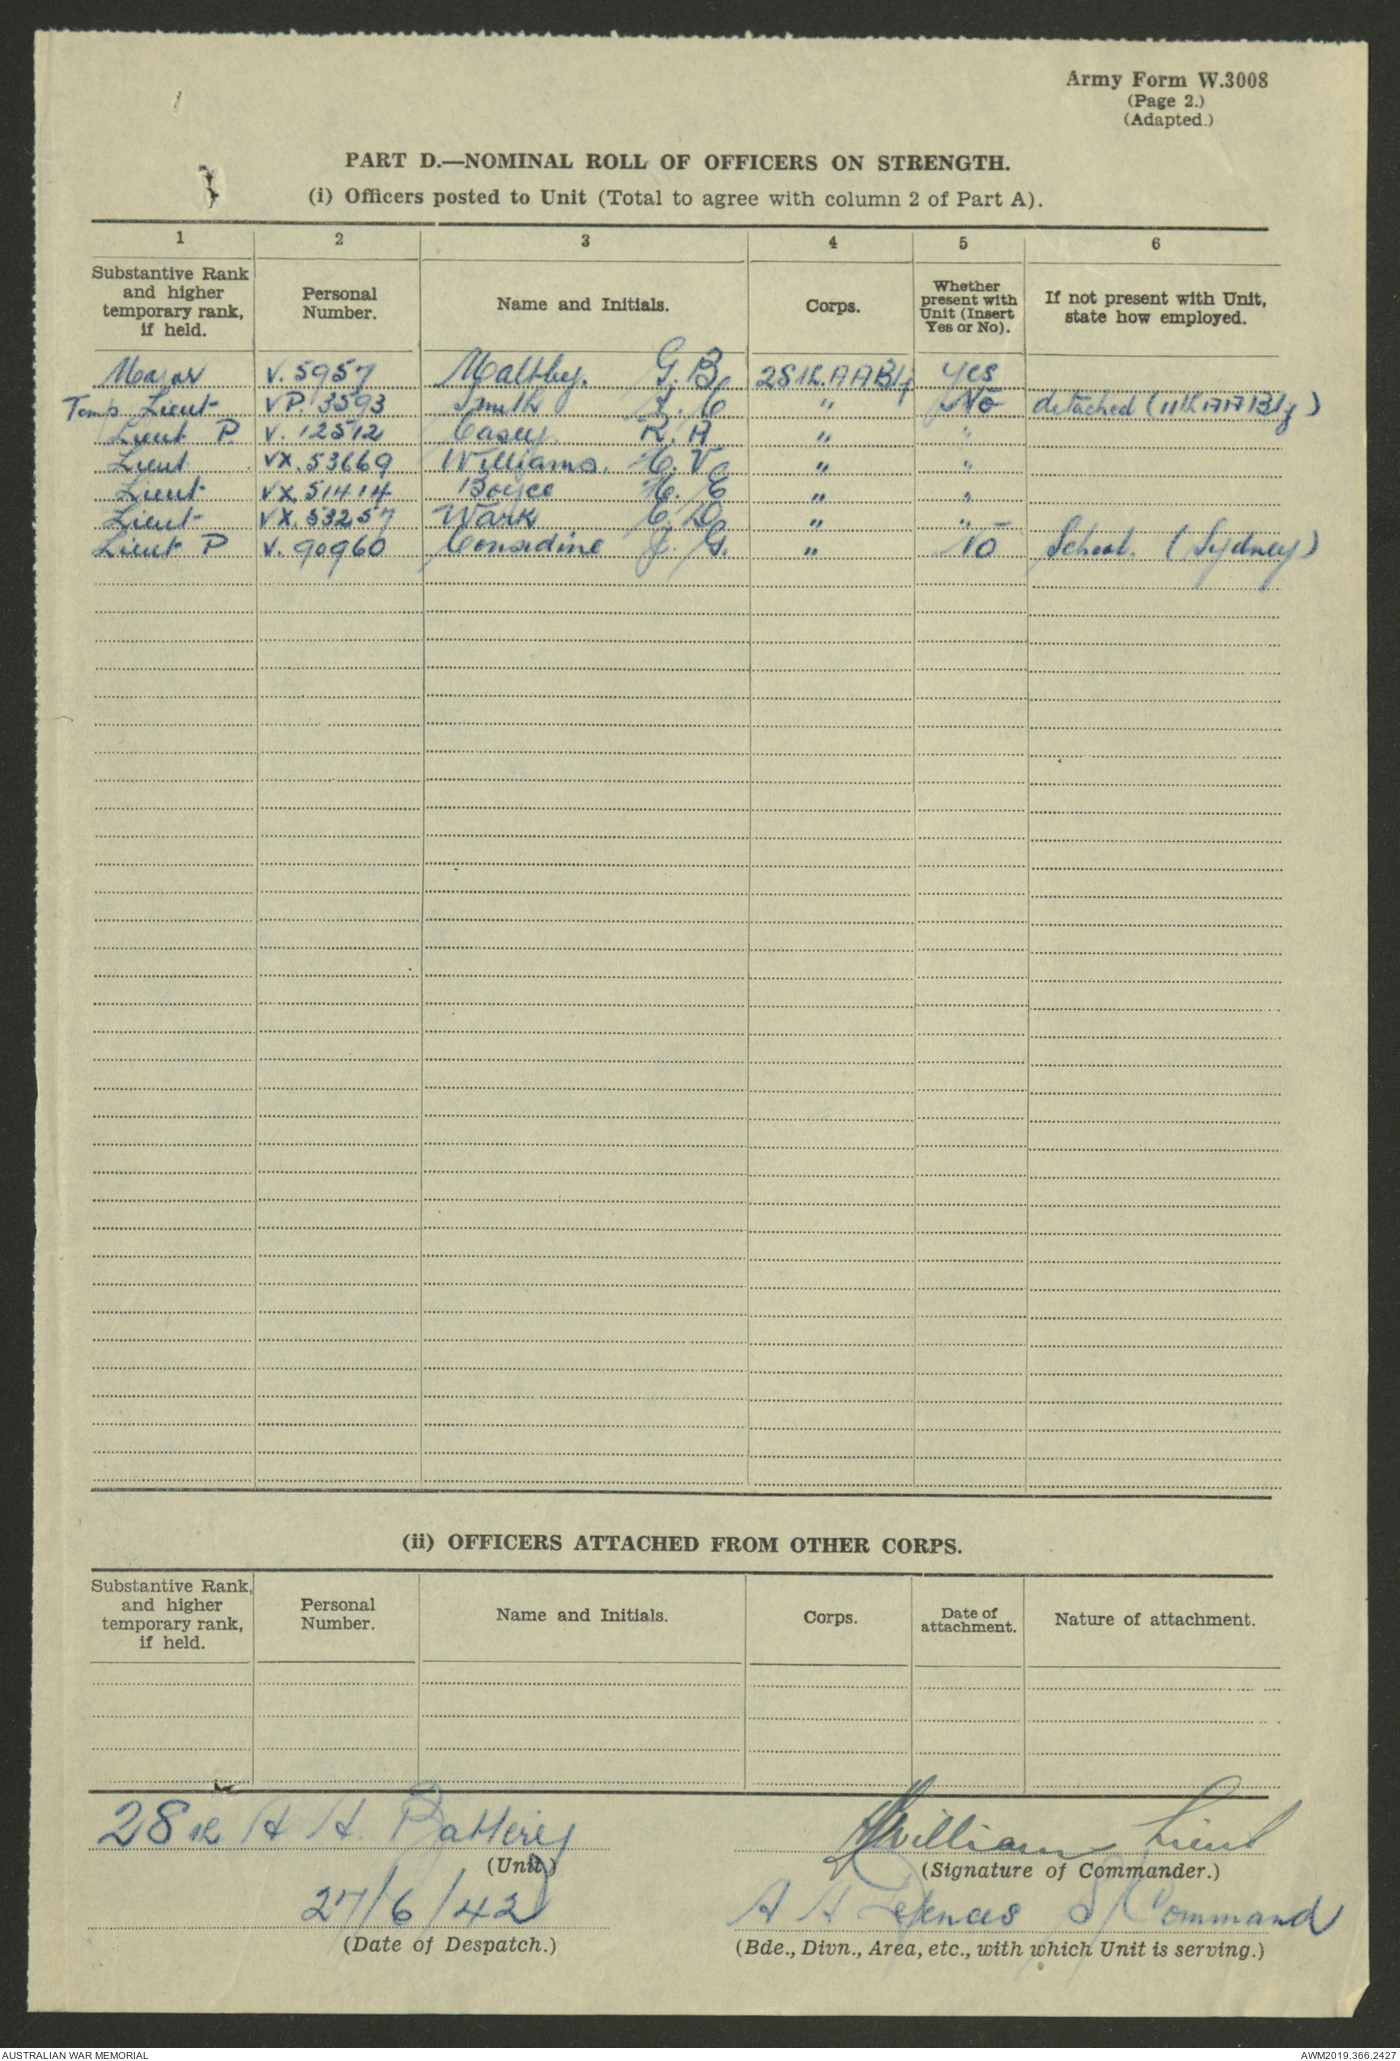 Army Form W.3008
(Page 2.)
(Adapted.)
PART D.—NOMINAL ROLL OF OFFICERS ON STRENGTH.
(i) Officers posted to Unit (Total to agree with column 2 of Part A).
1 2 3 4 5 6
Substantive Rank and higher temporary rank, if held. Personal Number. Name and Initials. Corps. Whether present with Unit (Insert Yes or No). If not present with Unit, state how employed.
Major V. 5957 Maltby. G. B. 28th. A A Bty yes
Temp Lieut VP. 3593 Smith L. C " No detached (11th A A Bty)
Lieut P V. 12512 Casey. R. A " "
Lieut VX. 53669 Williams. H. V. " "
Lieut VX. 51414 Boyce H. E " "
Lieut VX. 53257 Wark C. D. " "
Lieut P V. 90960 Considine J. G. " No School. (Sydney)
(ii) OFFICERS ATTACHED FROM OTHER CORPS.
Substantive Rank, and higher temporary rank, if held. Personal Number. Name and Initials. Corps. Date of attachment. Nature of attachment.
28th A A Battery William Lieut
(Unit.) (Signature of Commander.)
27/6/42 A A Defences S/Command
(Date of Despatch.) (Bde., Divn., Area, etc., with which Unit is serving.)
AUSTRALIAN WAR MEMORIAL AWM2019.366.2427